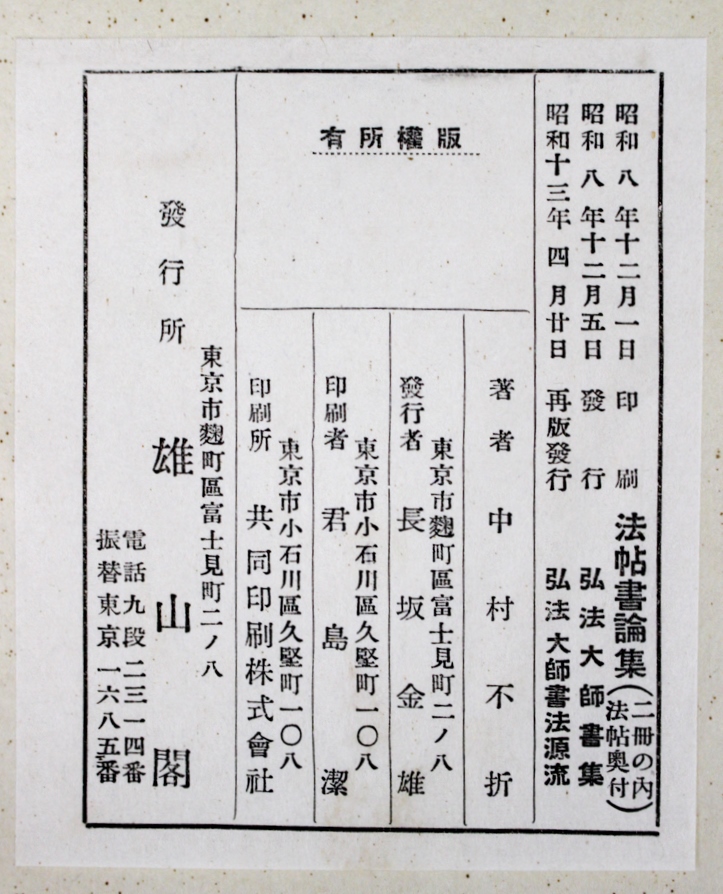 昭和八年十二月一日印刷
法帖書論集(二冊の內法帖奧付)
昭和八年十二月五日發行
弘法大師書集
昭和十三年四月廿日再版發行
弘法大師書法源流
版權所有
著者中村不折
東京市麴町區富士見町二ノ八
發行者長坂金雄
東京市小石川區久堅町一〇八
印刷者君島潔
東京市小石川區久堅町一〇八
印刷所共同印刷株式會社
東京市麴町區富士見町二ノ八
發行所雄山閣
電話九段二三一四番
振替東京一六八五番